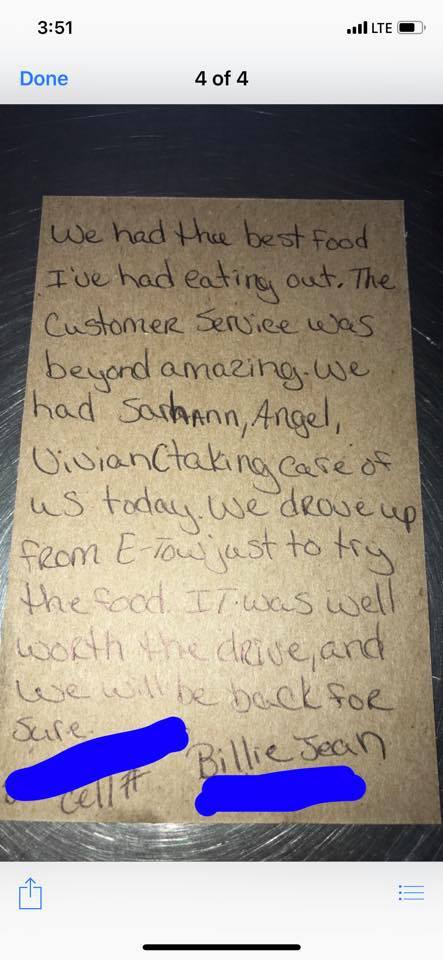 3:51 LTE
Done 4 of 4
We had the best food
I've had eating out. The
Customer Service was
beyond amazing. We
had SarhAnn, Angel,
Vivian(taking care of
us today. We drove up
from E-Tow just to try
the food. IT was well
worth the drive, and
we will be back for
sure.
Billie Jean
Cell #